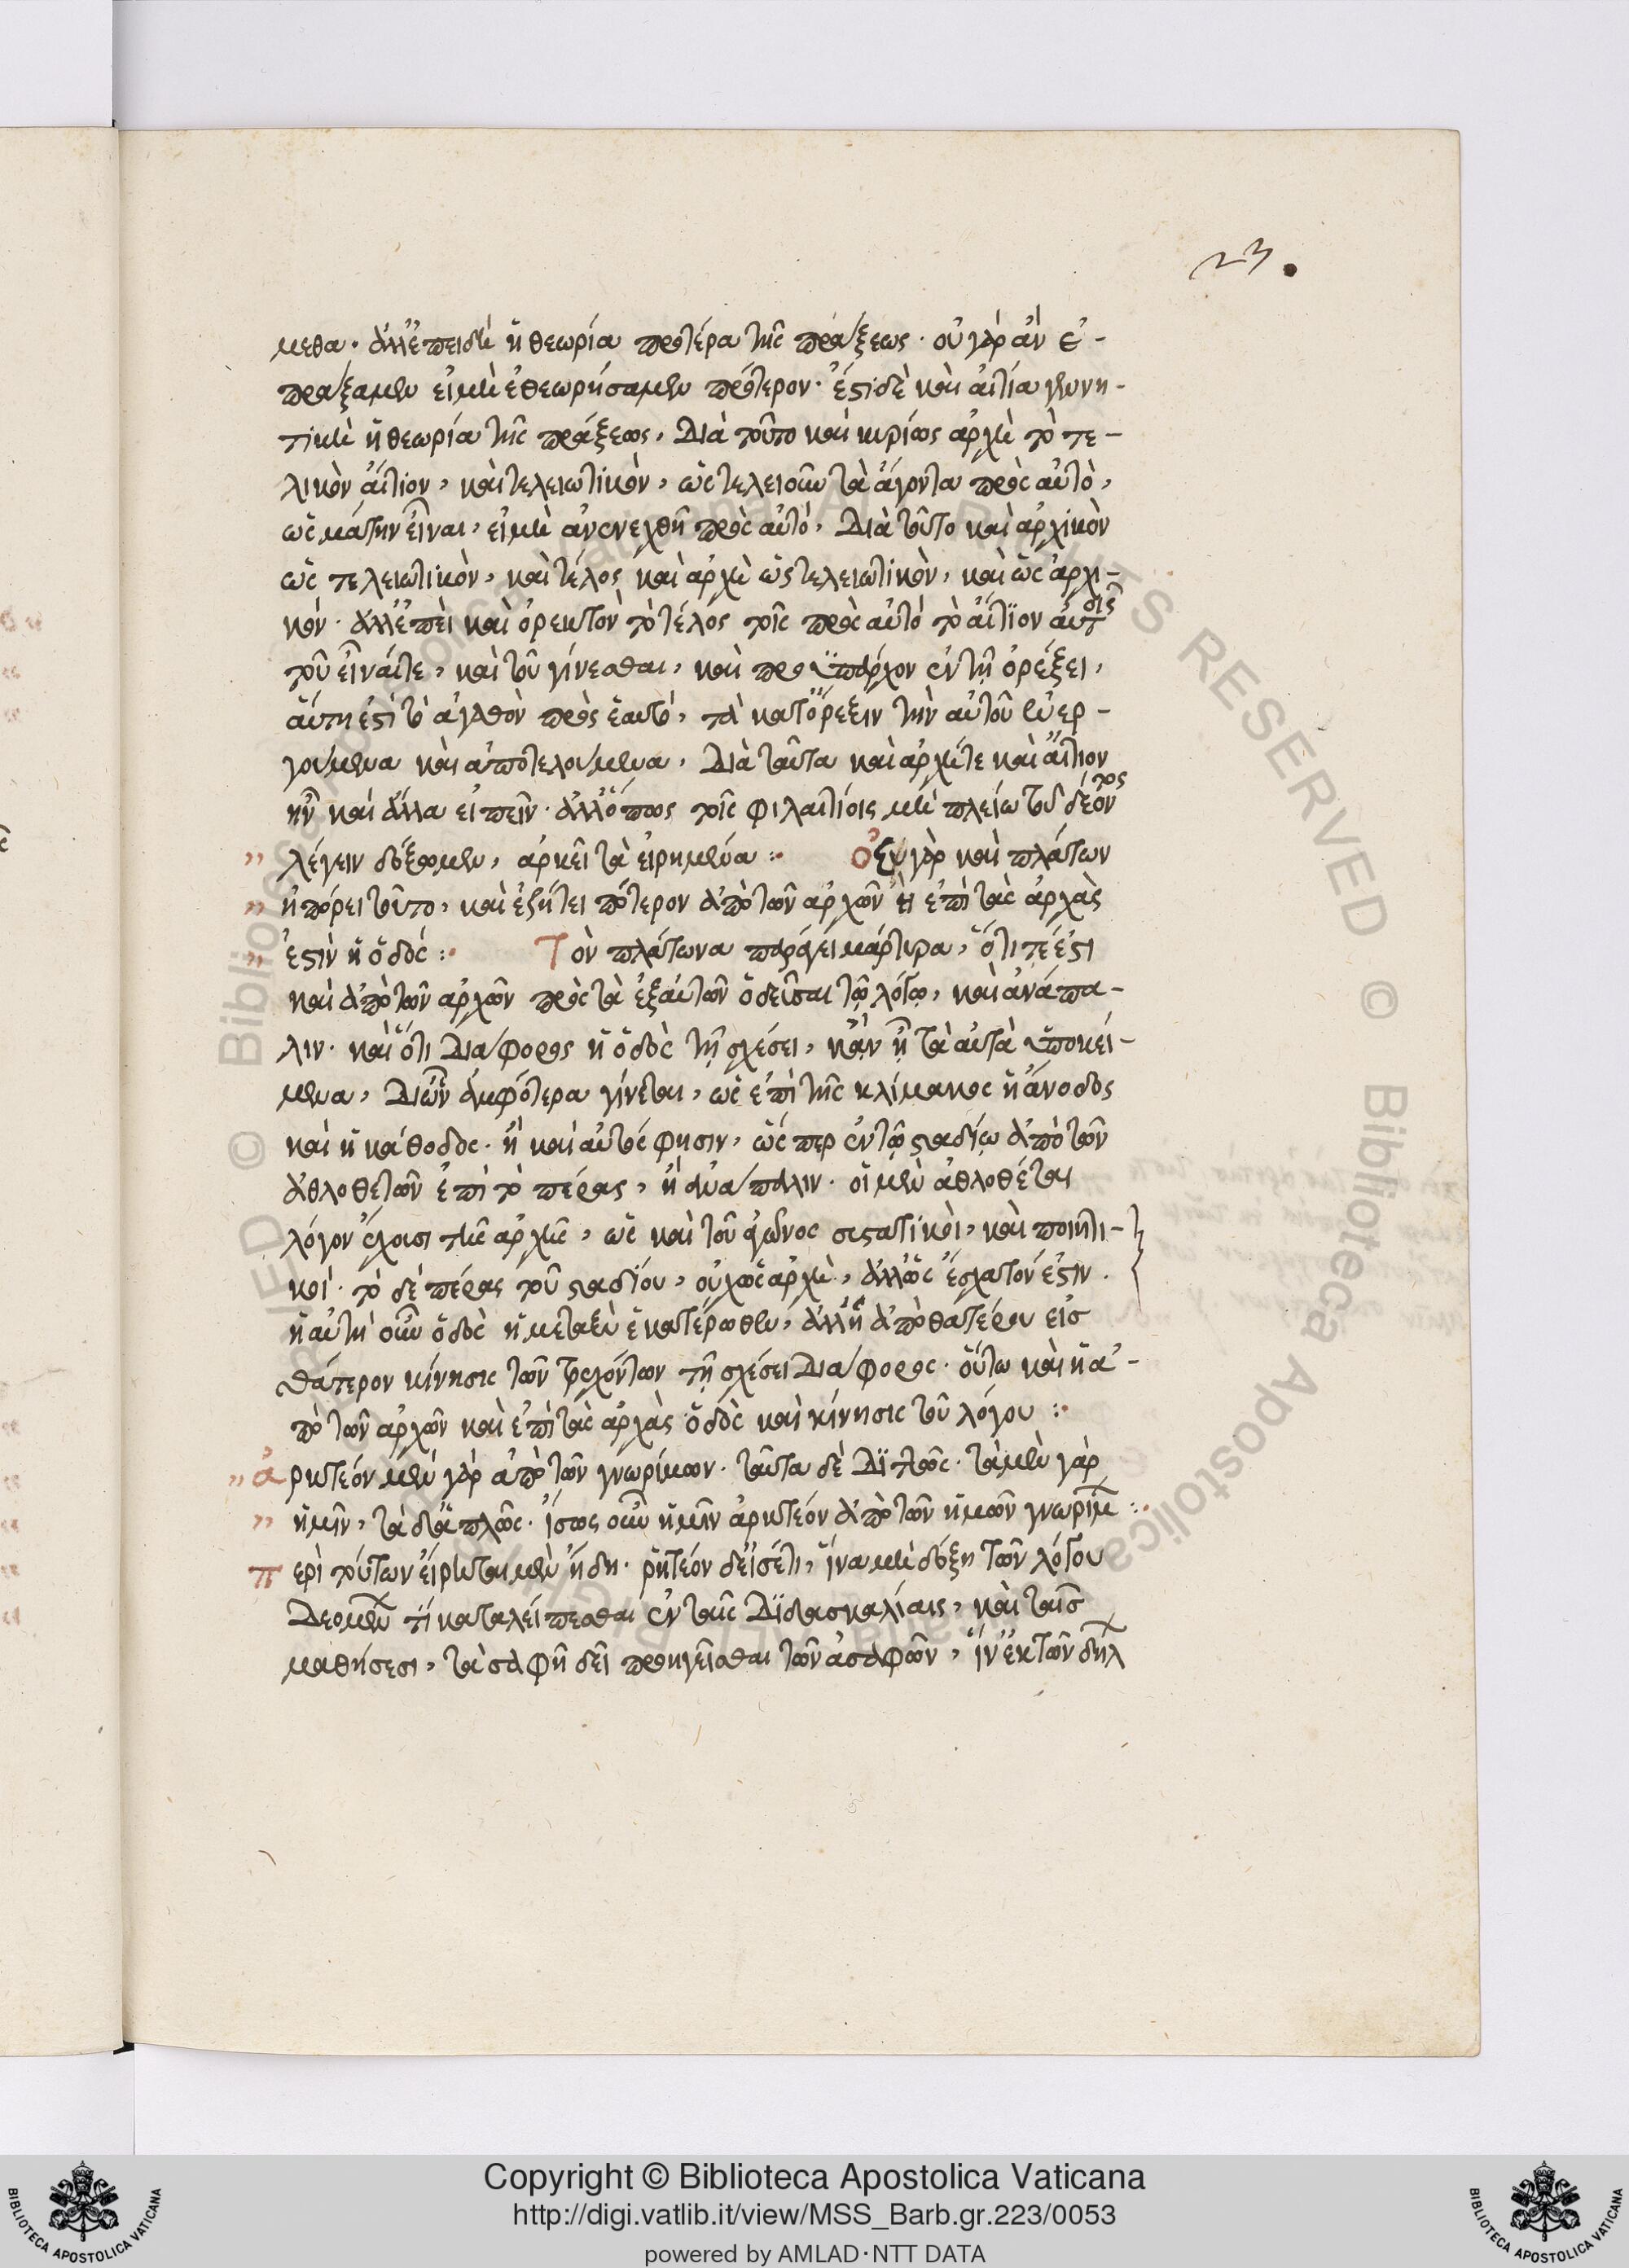 23.
μεθα· ἀλλ' ἐπειδὴ ἡ θεωρία προτέρα τῆς πράξεως· οὐ γὰρ ἂν ἐ-
πράξαμεν εἰ μὴ ἐθεωρήσαμεν πρότερον· ἔστι δὲ καὶ αἰτία γεννη-
τικὴ ἡ θεωρία τῆς πράξεως, διὰ τοῦτο καὶ κυρίως ἀρχὴ τὸ τε-
λικὸν αἴτιον, καὶ τελειωτικὸν, ὡς τελειοῦν τὰ ἄγοντα πρὸς αὐτὸ,
ὡς μάτην εἶναι, εἰ μὴ ἀνενεχθῆ πρὸς αὐτό, διὰ τοῦτο καὶ ἀρχικὸν
ὡς τελειωτικὸν, καὶ τέλος καὶ ἀρχὴ ὡς τελειωτικὸν, καὶ ὡς ἀρχι-
κόν· ἀλλ' ἐπεὶ καὶ ὀρεκτὸν τὸ τέλος τοῖς πρὸς αὐτό τὸ αἴτϊον αὐτοῖς
τοῦ εἶναί τε, καὶ τοῦ γίνεσθαι, καὶ προϋπάρχον ἐν τῇ ὀρέξει,
αὕτη ἐστὶ τὸ ἀγαθὸν πρὸς ἑαυτό, τὰ κατ' ὄρεξιν τὴν αὐτοῦ ἐνερ-
γούμενα καὶ ἀποτελούμενα, διὰ ταῦτα καὶ ἀρχή τε καὶ αἴτιον
ἦν καὶ ἄλλα εἰπεῖν· ἀλλ' ὅπως τοῖς φιλαιτίοις μὴ πλείω τοῦ δέοντος
λέγειν δόξωμεν, ἀρκεῖ τὰ εἰρημένα :· Εὖ γὰρ καὶ πλάτων
ἠπόρει τοῦτο, καὶ ἐζήτει πότερον ἀπὸ τῶν ἀρχῶν ἢ ἐπὶ τὰς ἀρχὰς
ἐστὶν ἡ ὁδός :· Τὸν πλάτωνα παράγει μάρτυρα, ὅτι τέ ἐστι
καὶ ἀπὸ τῶν ἀρχῶν πρὸς τὰ ἐξ αὐτῶν ὁδεῦσαι τῷ λόγῳ, καὶ ἀνάπα-
λιν· καὶ ὅτι διάφορος ἡ ὁδὸς τῇ σχέσει, κἂν ᾖ τὰ αὐτὰ ὑποκεί-
μενα, δι' ὧν ἀμφότερα γίνεται, ὡς ἐπὶ τῆς κλίμακος ἡ ἄνοδος
καὶ ἡ κάθοδος· ἢ καὶ αὐτός φησιν, ὥσπερ ἐν τῷ σταδίῳ ἀπὸ τῶν
ἀθλοθετῶν ἐπὶ τὸ πέρας, ἢ ἀνάπαλιν· οἱ μὲν ἀθλοθέται
λόγον ἔχουσι τῆς ἀρχῆς, ὡς καὶ τοῦ ἀγῶνος συστατικοὶ, καὶ ποιητι-
κοί· τὸ δὲ πέρας τοῦ σταδίου, οὐχ ὡς ἀρχὴ, ἀλλ' ὡς ἔσχατόν ἐστιν.
ἡ αὐτὴ οὖν ὁδὸς ἡ μεταξὺ ἑκατέρωθεν, ἀλλ' ἡ ἀπὸ θατέρου εἰς
θάτερον κίνησις τῶν τρεχόντων τῇ σχέσει διάφορος· οὕτω καὶ ἡ ἀ-
πὸ τῶν ἀρχῶν καὶ ἐπὶ τὰς ἀρχὰς ὁδὸς καὶ κίνησις τοῦ λόγου :·
ἀρκτέον μὲν γὰρ ἀπὸ τῶν γνωρίμων· ταῦτα δὲ διττῶς· τὰ μὲν γὰρ
ἡμῖν, τὰ δ' ἁπλῶς· ἴσως οὖν ἡμῖν ἀρκτέον ἀπὸ τῶν ἡμῶν γνωρίμ :·
περὶ τούτων εἴρηται μὲν ἤδη· ῥητέον δ' εἰσέτι, ἵνα μὴ δόξῃ τῶν λόγου
δεομέν τί καταλείπεσθαι ἐν ταῖς διδασκαλίαις, καὶ ταῖς
μαθήσεσι, τὰ σαφῆ δεῖ προηγεῖσθαι τῶν ἀσαφῶν, ἵν' ἐκ τῶν δήλ
Copyright © Biblioteca Apostolica Vaticana
http://digi.vatlib.it/view/MSS_Barb.gr.223/0053
powered by AMLAD·NTT DATA